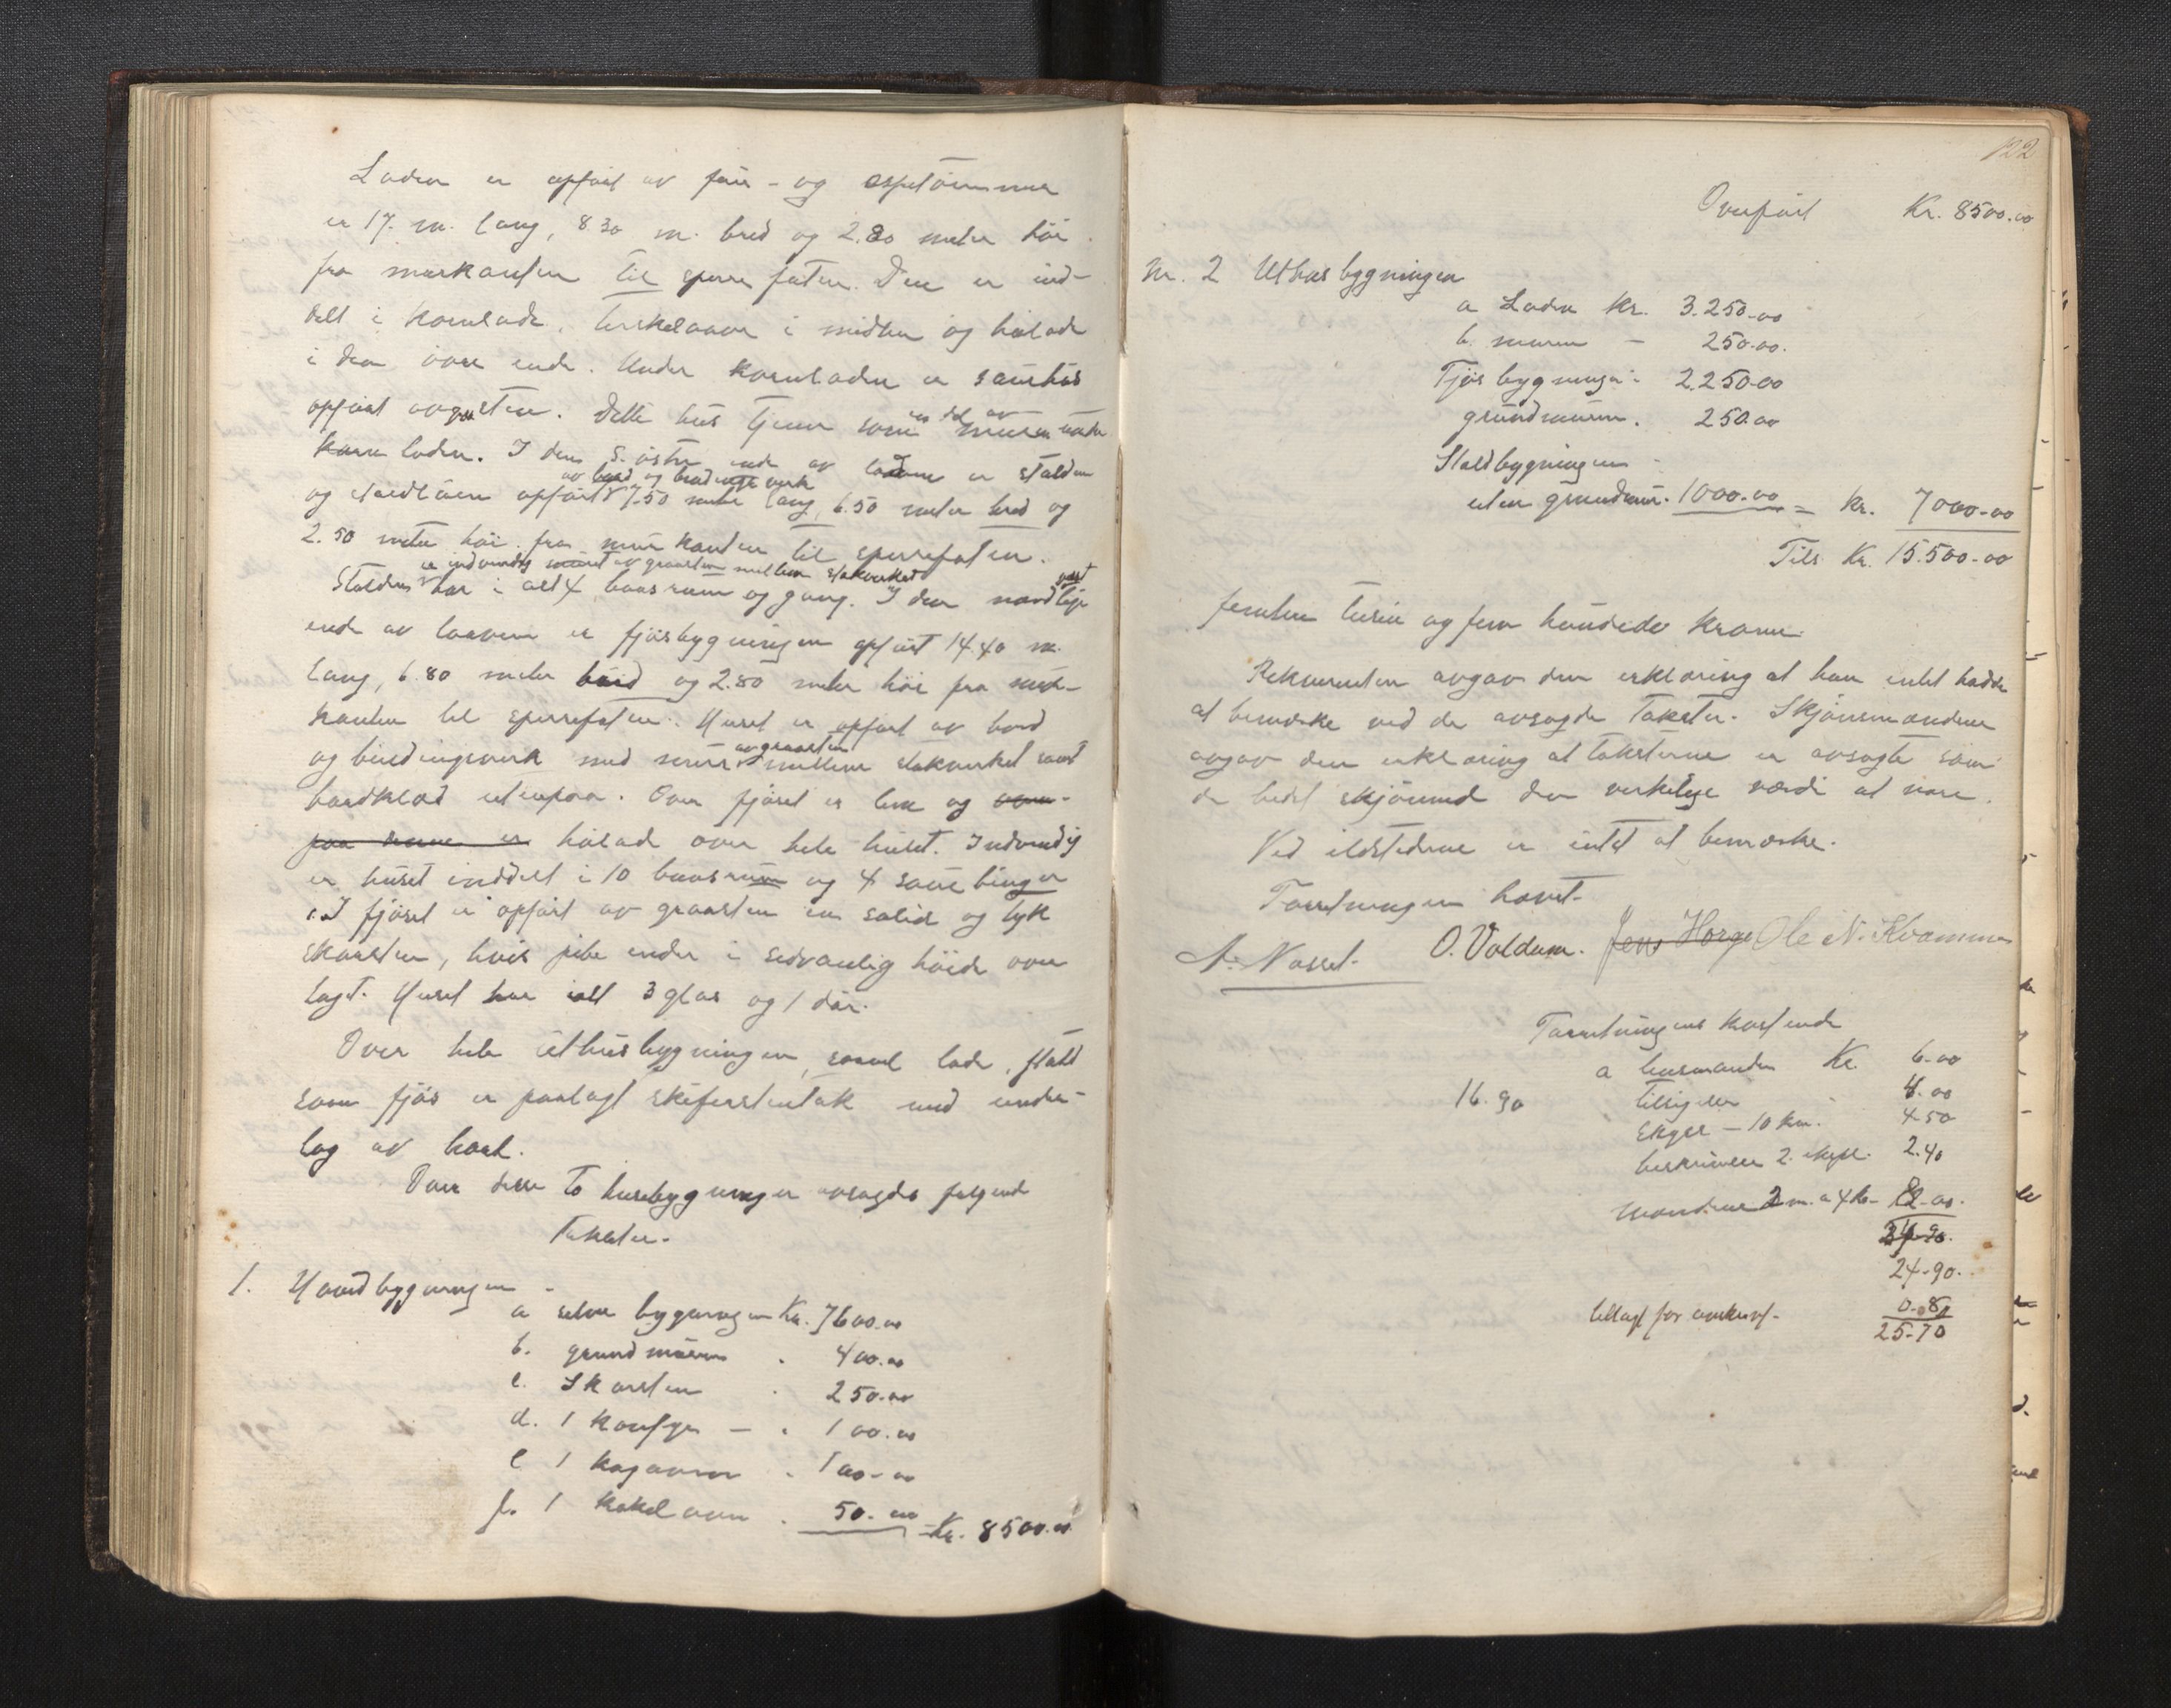 Laden er opført av furu- og ospetømmer
er 17. m. lang, 8.30 m. bred og 2.80 meter høi
fra murkanten til sperrefoten. Den er ind-
delt i kornlade, treskelaave i midten og høilade
i den øvre ende. Under kornladen er sauehus
opført av graasten. Dette hus tjener som en del av muren under
korn laden. I den s. østre ende av laden er stalden
og staldlåven opført av bord og bindingsverk 7.50 meter lang, 6.50 meter bred og
2.50 meter høi fra murkanten til sperrefoten.
Stalden er indvendig muret av graasten mellem stakverket har i alt 4 baasrum og gang. I den nordvestlige
ende av laaven er fjøsbygningen opført 14.40 m.
lang, 6.80 meter bred og 2.80 meter høi fra mur-
kanten til sperrefoten. Huset er opført av bord
og bindingsverk med mur av graasten mellem stakverket samt
bordklæd utenpaa. Over fjøset er lem og oven-
paa denne er høilad over hele huset. Indvendig
er huset inddelt i 10 baasrum og 4 sauebinger
I fjøset er opført av graasten en solid og tyk
skorsten, hvis pibe ender i sedvanlig høide over
taget. Huset har ialt 3 glas og 1 dør.
Over hele uthusbygningen, saavel lade, stald
som fjøs er paalagt skiferstentak med under-
lag av bord.
Over disse to husebygninger avsagdes følgende
Takster.
1. Hovedbygningen -
a selve bygningen Kr. 7600.00
b. grundmuren . 400.00
c. Skorsten . 250.00
d. 1 komfyr - . 100.00
e 1 kogeovn . 100-00
f. 1 kakelovn . 50.00 = Kr. 8500.00
122
Overført Kr. 8500.00
Nr. 2 Uthusbygningen
a Laden Kr. 3.250-00
b. muren - 250.00.
Fjøsbygningen - 2.250.00
grundmuren. 250.00
Staldbygningen -
uten grundmur. 1000.00 = Kr. 7000-00
Tils Kr. 15.500-00
femten tusen og fem hundrede kroner.
Rekvirenten avgav den erklæring at han intet hadde
at bemerke ved de avsagde takster. Skjønsmændene
avgav den erklæring at taksterne er avsagte som
de bedst skjønned den verkelige værdi at være.
Ved ildstederne er intet at bemerke.
Forretningen hævet.
A. Næsset. O. Voldum. Jens Horge Ole N. Kvammen
Forretningens kostende
a lensmanden Kr. 6.00
16.90 tilsigelse 4.00
skyss - 10 km. 4.50
beskrivelse 2. expl. 2.40
mændene 2 m. a 4 kr - 8.00.
24.90.
24-90.
tillagt for avskrift - 0.80
25-70